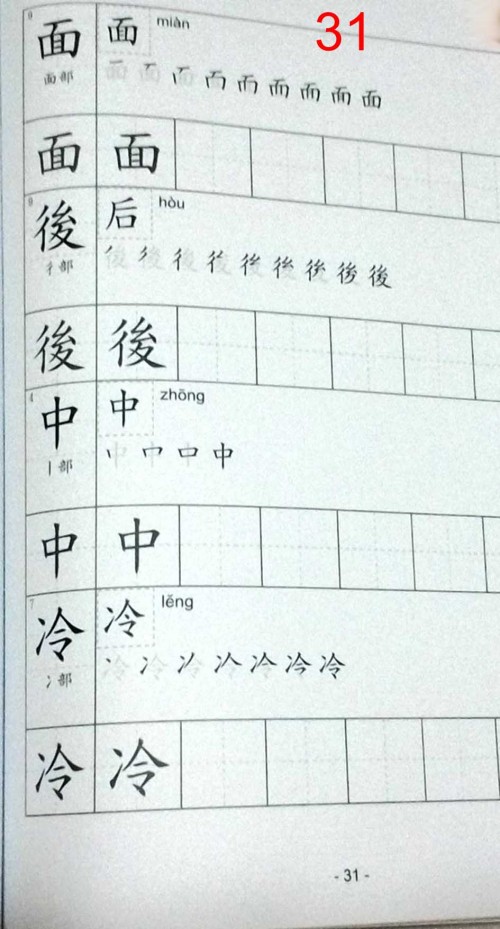 31
9
面 面 miàn
面部 面 面 面 面 面 面 面 面 面
面 面
9
後 后 hòu
彳部 後 後 後 後 後 後 後 後 後
後 後
4
中 中 zhōng
丨部 中 中 中 中
中 中
7
冷 冷 lěng
冫部 冷 冷 冷 冷 冷 冷 冷
冷 冷
- 31 -